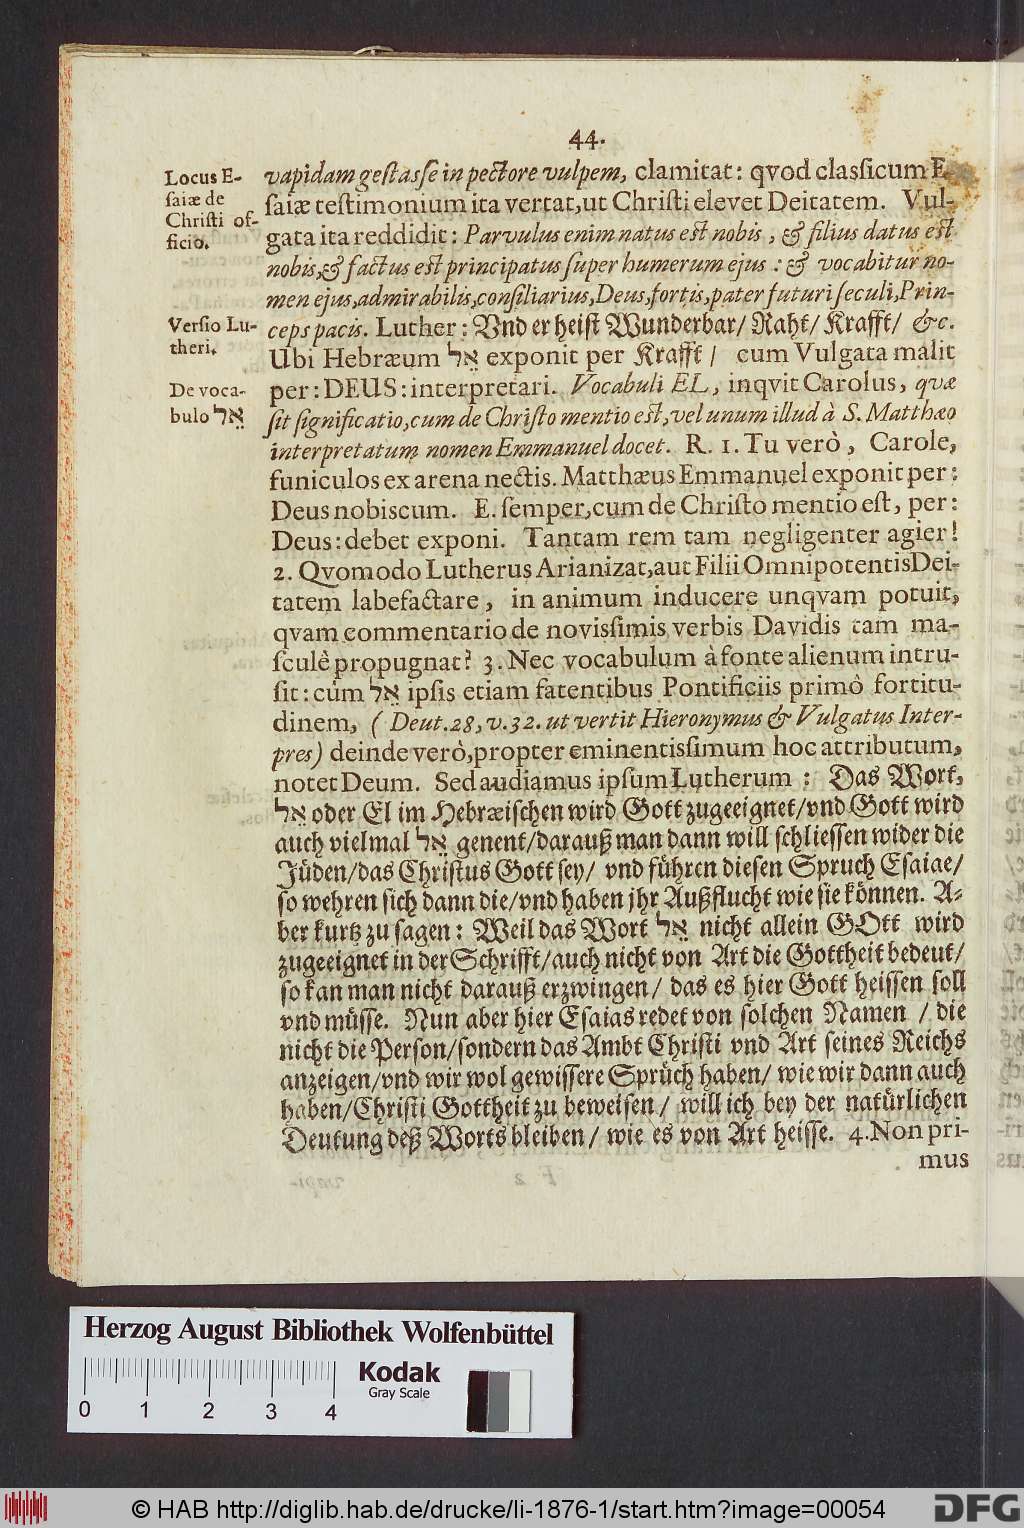 44.
Locus E-
saiæ de
Christi of-
ficio.
vapidam gestasse in pectore vulpem, clamitat: qvod classicum E-
saiæ testimonium ita vertat, ut Christi elevet Deitatem. Vul-
gata ita reddidit: Parvulus enim natus est nobis, & filius datus est
nobis, & factus est principatus super humerum ejus: & vocabitur no-
men ejus, admirabilis, consiliarius, Deus, fortis, pater futuri seculi, Prin-
Versio Lu-
theri.
ceps pacis. Luther: Vnd er heist Wunderbar/ Raht/ Krafft/ &c.
Ubi Hebræum אֵל exponit per Krafft/ cum Vulgata malit
De voca-
bulo אֵל
per: DEUS: interpretari. Vocabuli EL, inqvit Carolus, qvæ
sit significatio, cum de Christo mentio est, vel unum illud à S. Matthæo
interpretatum nomen Emmanuel docet. R. 1. Tu verò, Carole,
funiculos ex arena nectis. Matthæus Emmanuel exponit per:
Deus nobiscum. E. semper, cum de Christo mentio est, per:
Deus: debet exponi. Tantam rem tam negligenter agier!
2. Qvomodo Lutherus Arianizat, aut Filii Omnipotentis Dei-
tatem labefactare, in animum inducere unqvam potuit,
qvam commentario de novissimis verbis Davidis tam ma-
sculè propugnat? 3. Nec vocabulum à fonte alienum intru-
sit: cùm אֵל ipsis etiam fatentibus Pontificiis primò fortitu-
dinem, (Deut. 28, v. 32. ut vertit Hieronymus & Vulgatus Inter-
pres) deinde verò, propter eminentissimum hoc attributum,
notet Deum. Sed audiamus ipsum Lutherum: Das Wort,
אֵל oder El im Hebræischen wird Gott zugeeignet/ vnd Gott wird
auch vielmal אֵל genent/ darauß man dann will schliessen wider die
Jüden/ das Christus Gott sey/ vnd führen diesen Spruch Esaiae/
so wehren sich dann die/ vnd haben jhr Außflucht wie sie können. A-
ber kurtz zu sagen: Weil das Wort אֵל nicht allein GOtt wird
zugeeignet in der Schrifft/ auch nicht von Art die Gottheit bedeut/
so kan man nicht darauß erzwingen/ das es hier Gott heissen soll
vnd müsse. Nun aber hier Esaias redet von solchen Namen/ die
nicht die Person/ sondern das Ambt Christi vnd Art seines Reichs
anzeigen/ vnd wir wol gewissere Sprüch haben/ wie wir dann auch
haben/ Christi Gottheit zu beweisen/ will ich bey der natürlichen
Deutung deß Worts bleiben/ wie es von Art heisse. 4. Non pri-
mus
Herzog August Bibliothek Wolfenbüttel
Kodak
Gray Scale
0 1 2 3 4
© HAB http://diglib.hab.de/drucke/li-1876-1/start.htm?image=00054
DFG